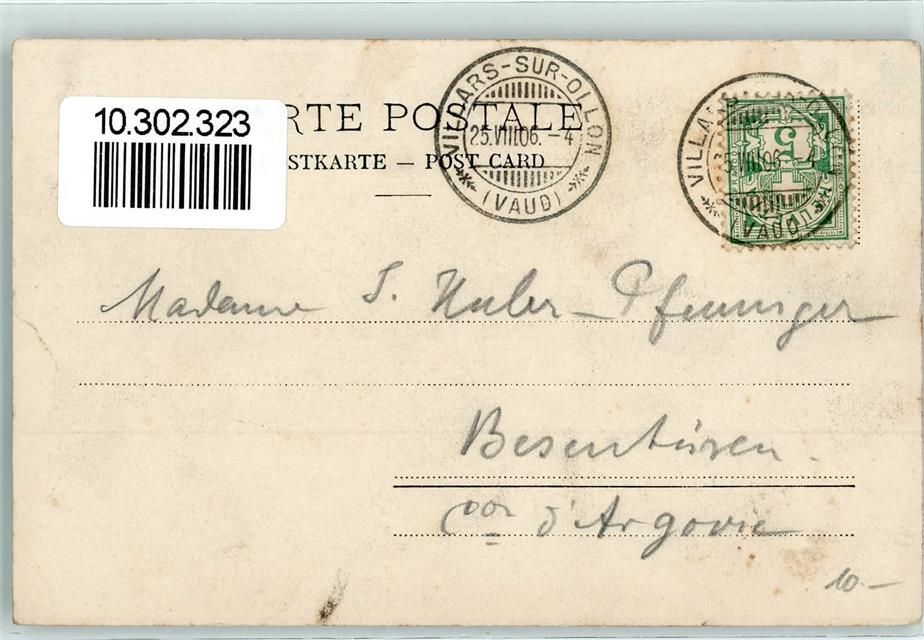 10.302.323
RTE POSTALE
STKARTE — POST CARD
VILLARS-SUR-OLLON
25.VIII06.-4
(VAUD)
VILLA
VIII06.-4
(VAUD)
5
Madame S. Huber-Pfenniger
Besenbüren.
Con d'Argovie
10.-